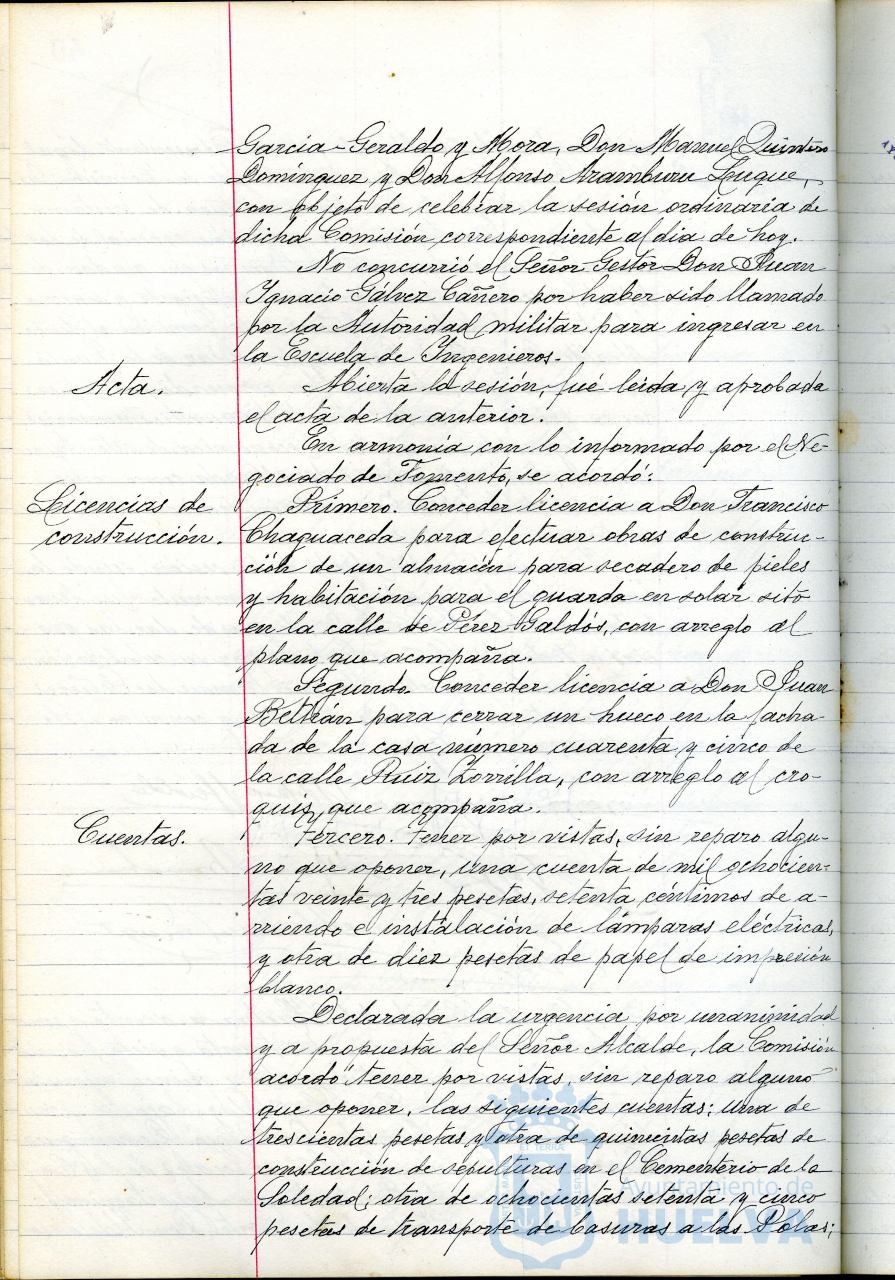 Garcia-Geraldo y Mora, Don Manuel Quintero
Domínguez y Don Alfonso Aramburu Luque,
con objeto de celebrar la sesión ordinaria de
dicha Comisión correspondiente al dia de hoy.
No concurrió el Señor Gestor Don Juan
Ignacio Gálvez Cañero por haber sido llamado
por la Autoridad militar para ingresar en
la Escuela de Ingenieros.
Acta.
Abierta la sesión, fué leida y aprobada
el acta de la anterior.
En armonía con lo informado por el Ne-
gociado de Fomento, se acordó:
Licencias de
construcción.
Primero. Conceder licencia a Don Francisco
Chaguaceda para efectuar obras de construc-
ción de un almacén para secadero de pieles
y habitación para el guarda en solar sito
en la calle de Pérez Galdós, con arreglo al
plano que acompaña.
Segundo. Conceder licencia a Don Juan
Beltrán para cerrar un hueco en la facha-
da de la casa número cuarenta y cinco de
la calle Ruiz Zorrilla, con arreglo al cro-
quis, que acompaña.
Cuentas.
Tercero. Tener por vistas, sin reparo algu-
no que oponer, una cuenta de mil ochocien-
tas veinte y tres pesetas, setenta céntimos de a-
rriendo e instalación de lámparas eléctricas,
y otra de diez pesetas de papel de impresión
blanco.
Declarada la urgencia por unanimidad
y a propuesta del Señor Alcalde, la Comisión
acordó tener por vistas, sin reparo alguno
que oponer, las siguientes cuentas: una de
trescientas pesetas y otra de quinientas pesetas de
construcción de sepulturas en el Cementerio de la
Soledad; otra de ochocientas setenta y cinco
pesetas de transporte de basuras a las Polas;
Ayuntamiento de
HUELVA